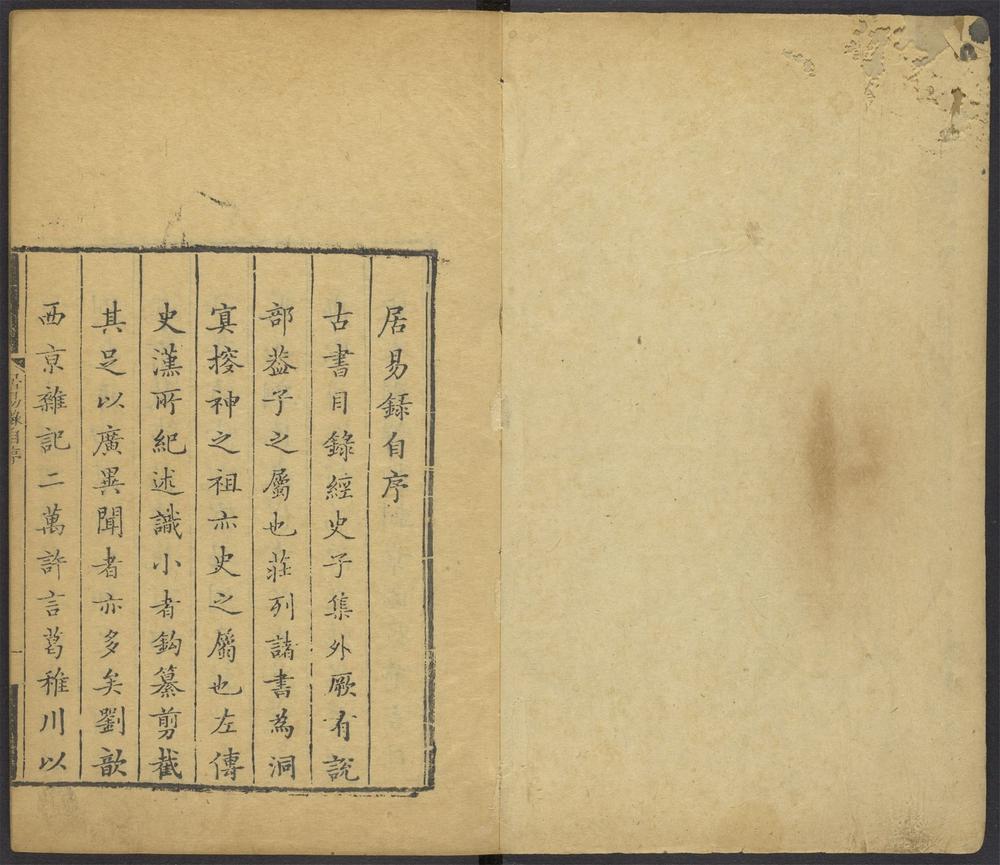 居易録自序
古書目錄經史子集外厥有說
部葢子之屬也莊列諸書為洞
寘搜神之祖亦史之屬也左傳
史漢所紀述識小者鈎纂剪截
其足以廣異聞者亦多矣劉歆
西京雜記二萬許言葛稚川以
居易錄自序